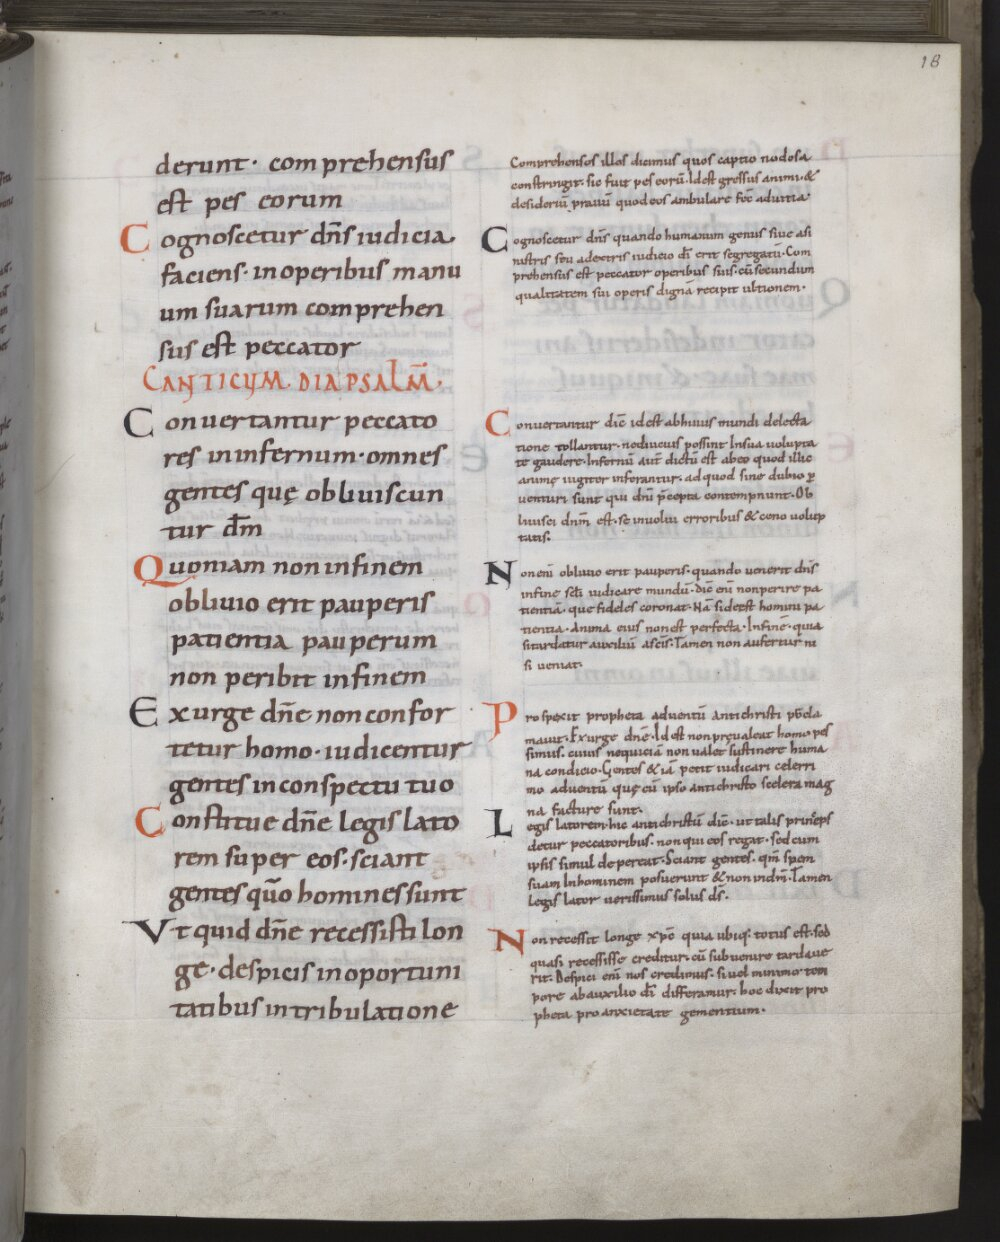 18
derunt· comprehensus
est pes eorum
Cognoscetur dn̄s iudicia
faciens· inoperibus manu
um suarum comprehen
sus est peccator
CANTICUM DIAPSALM̄·
Conuertantur peccato
res ininfernum· omnes
gentes quę obliuiscun
tur dm̄
Quoniam non infinem
obliuio erit pauperis
patientia pauperum
non peribit infinem
Exurge dn̄e non confor
tetur homo· iudicentur
gentes inconspectu tuo
Constitue dn̄e legis lato
rem super eos· sciant
gentes qūo homines sunt
Vt quid dn̄e recessisti lon
ge· despicis inoportuni
tatibus intribulatione
Comprehensos illos dicimus quos captio nodosa
constringit· sic fuit pes eorū· Idest gressus animi· &
desideriū prauū quod eos ambulare fec̄ aduitia
Cognoscetur dn̄s quando humanum genus siue asi
nistris seu adextris iudicio dī erit segregatū· Com
prehensus est peccator operibus suis· cū secundum
qualitatem sui operis dignā recipit ultionem·
Conuertantur dic̄ idest abhuius mundi delecta
tione tollantur· nediucius possint Insua uolupta
te gaudere· Infernū aut̄ dictū est abeo quod illic
animę iugiter inferantur· adquod sine dubio ꝑ
uenturi sunt qui dn̄i p̄cepta contempnunt· Ob
liuisci dnm̄ est· se inuolui erroribus & ceno volup
tatis·
Non enī obliuio erit pauperis· quando uenerit dn̄s
infine scl̄i iudicare mundū· Dic̄ enī nonperire pa
tientiā· que fideles coronat· Nā sideest homini pa
tientia· Anima eius nonest perfecta· Infinē· quia
siturdatur auxiliū afcis· Tamen non aufertur ni
si ueniat·
Prospexit propheta aduentū antichristi p̄cla
mauit· Exurge dn̄e· Idest nonpręualeat homo pes
simus· cuius nequiciā non ualet sustinere huma
na condicio· Gentes & iā petit iudicari celerri
mo aduentū quę cū ipso antichristo scelera mag
na facture sunt·
Legis latorem· hic antichristū dic̄· ut talis princeps
detur peccatoribus· non qui eos regat· sed cum
ipsis simul depereat· Sciant gentes· qm̄ spem
suam Inhominem posuerunt & non indnm̄· Tamen
legis lator uerissimus solus ds̄·
Non recessit longe xp̄c quia ubiq; totus est· sed
quasi recessisse creditur· cū subuenire tardaue
rit· Despici enī nos credimus· siuel minimo tem
pore abauxilio dī differamur· hoc dixit pro
pheta pro anxietate gementium·